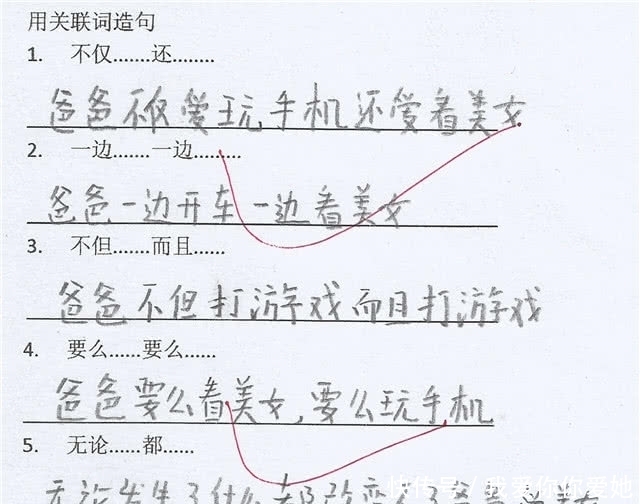 用关联词造句
1. 不仅.......还........
爸爸不仅爱玩手机还爱看美女
2. 一边.......一边.........
爸爸一边开车一边看美女
3. 不但.......而且......
爸爸不但打游戏而且打游戏
4. 要么......要么......
爸爸要么看美女,要么玩手机
5. 无论......都......
无论发生了什么都改变
快传号/我爱你你爱她